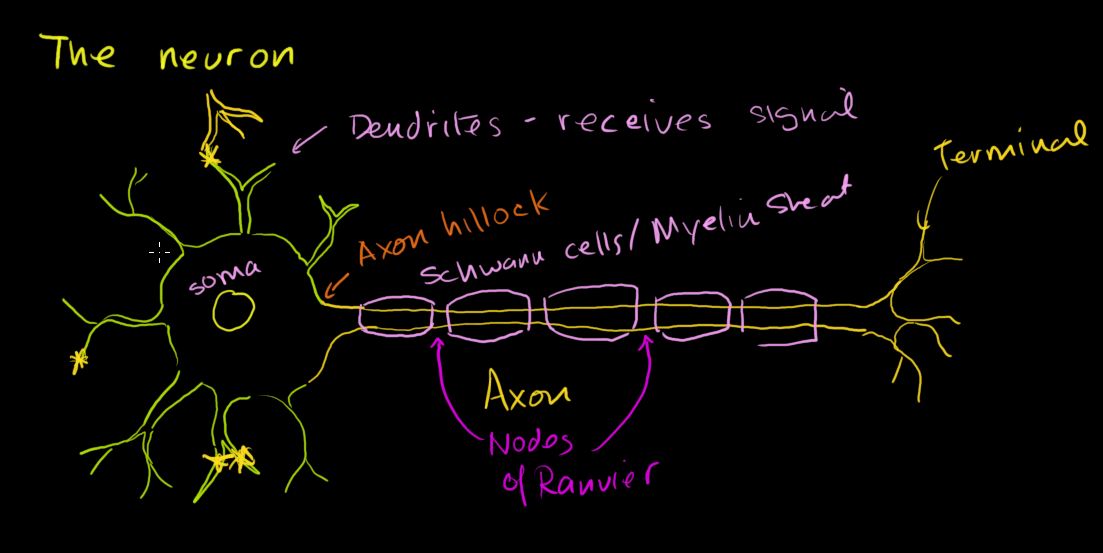 The neuron
Dendrites - receives signal
Terminal
Axon hillock
Schwann cells/Myelin Sheat
soma
Axon
Nodes
of Ranvier